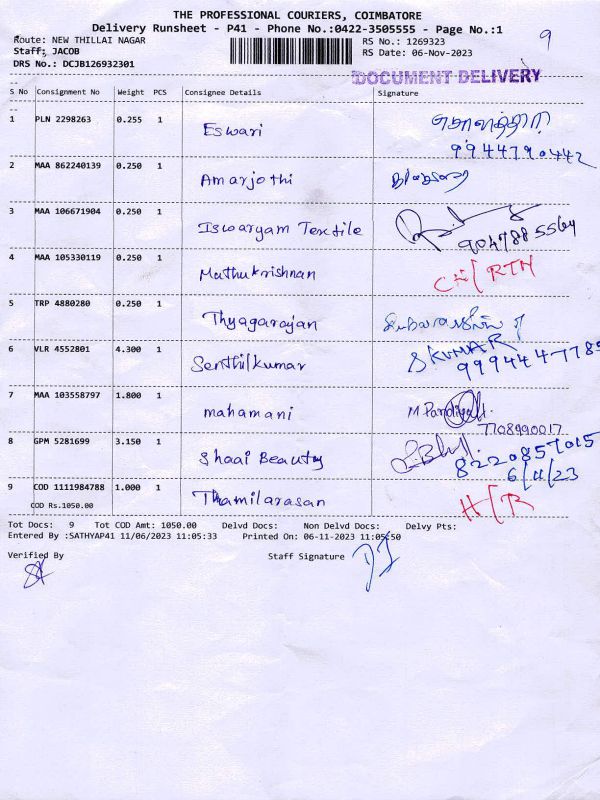 THE PROFESSIONAL COURIERS, COIMBATORE
Delivery Runsheet - P41 - Phone No.:0422-3505555 - Page No.:1
Route: NEW THILLAI NAGAR RS No.: 1269323 9
Staff: JACOB RS Date: 06-Nov-2023
DRS No.: DCJB126932301
DOCUMENT DELIVERY
S No Consignment No Weight PCS Consignee Details Signature
1 PLN 2298263 0.255 1 Eswari
9944790442
2 MAA 862240139 0.250 1 Amarjothi
3 MAA 106671904 0.250 1 Iswaryam Textile 9047885564
4 MAA 105330119 0.250 1 Muthukrishnan RTN
5 TRP 4880280 0.250 1 Thyagarajan
6 VLR 4552801 4.300 1 Senthilkumar S KUMAR
7 MAA 103558797 1.800 1 mahamani M Pandiyan
7708990017
8 GPM 5281699 3.150 1 Shaai Beauty 8220857015
6/11/23
9 COD 1111984788 1.000 1 Thamilarasan
COD Rs.1050.00
Tot Docs: 9 Tot COD Amt: 1050.00 Delvd Docs: Non Delvd Docs: Delvy Pts:
Entered By :SATHYAP41 11/06/2023 11:05:33 Printed On: 06-11-2023 11:05:50
Verified By Staff Signature